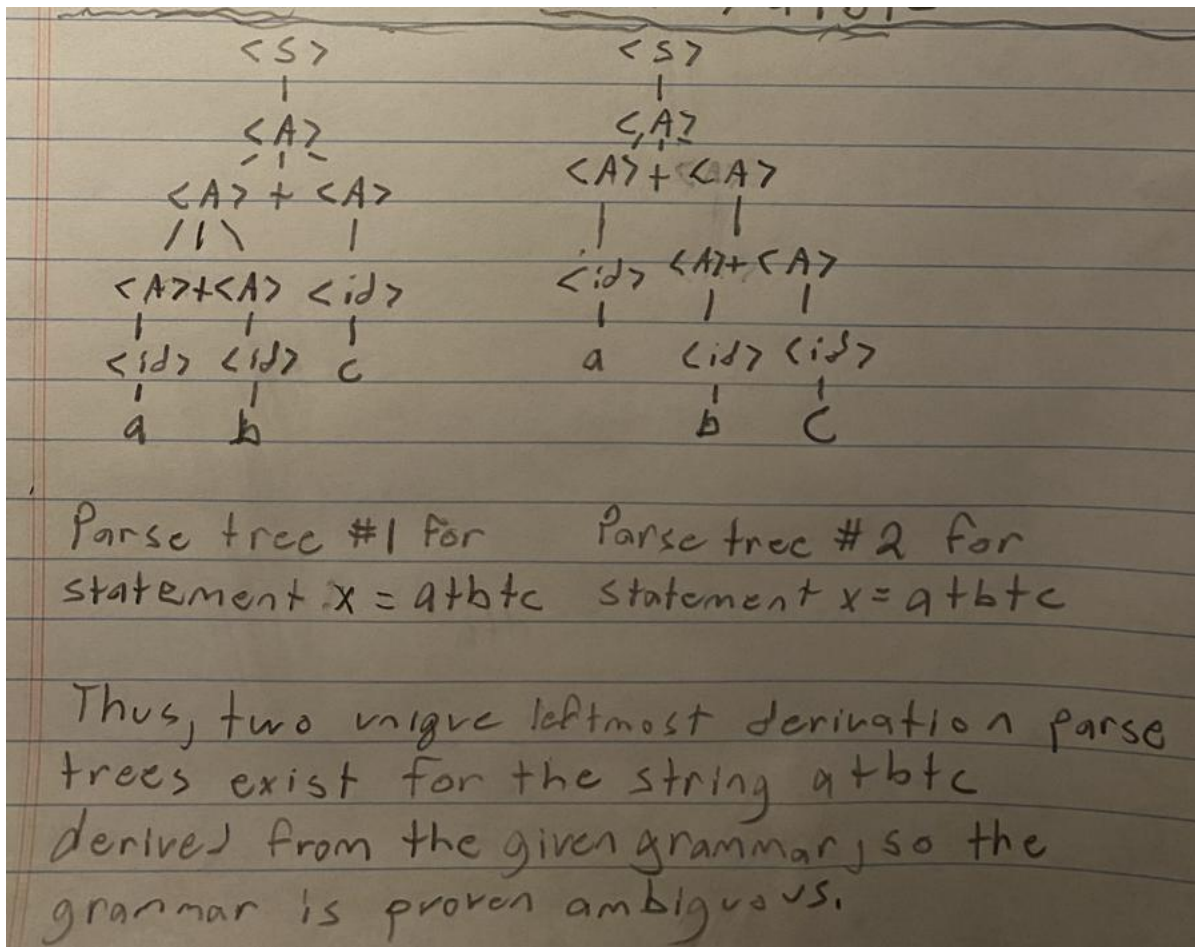 <S> <S>
<A> <A>
<A> + <A> <A> + <A>
<A>+<A> <id> <id> <A>+<A>
<id> <id> c a <id> <id>
a b b c
Parse tree #1 for Parse tree #2 for
statement x = a+b+c statement x = a+b+c
Thus, two unique leftmost derivation parse
trees exist for the string a+b+c
derived from the given grammar, so the
grammar is proven ambiguous.